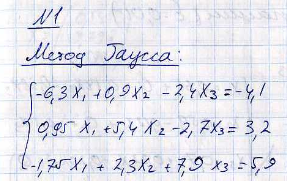 №1
Метод Гаусса:
-6,3x₁ + 0,9x₂ - 2,4x₃ = -4,1
0,95 x₁ + 5,4 x₂ - 2,7x₃ = 3,2
-1,75x₁ + 2,3x₂ + 7,9 x₃ = 5,9